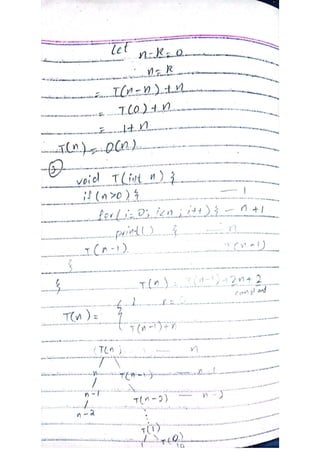 Let
n-k=0
n=k
= T(n-n)+n
= T(0)+n
= 1+n
T(n)=O(n)
②
void T(int n) {
if(n>0) { — 1
for(i=0; i<n; i++) { — n+1
printf() — n
T(n-1) T(n-1)
}
}
T(n) = T(n-1)+2n+2
constant
T(n) = {
T(n-1)+n
T(n) — n
n T(n-1) — n-1
n-1 T(n-2) — n-2
n-2
T(1)
1 T(0)